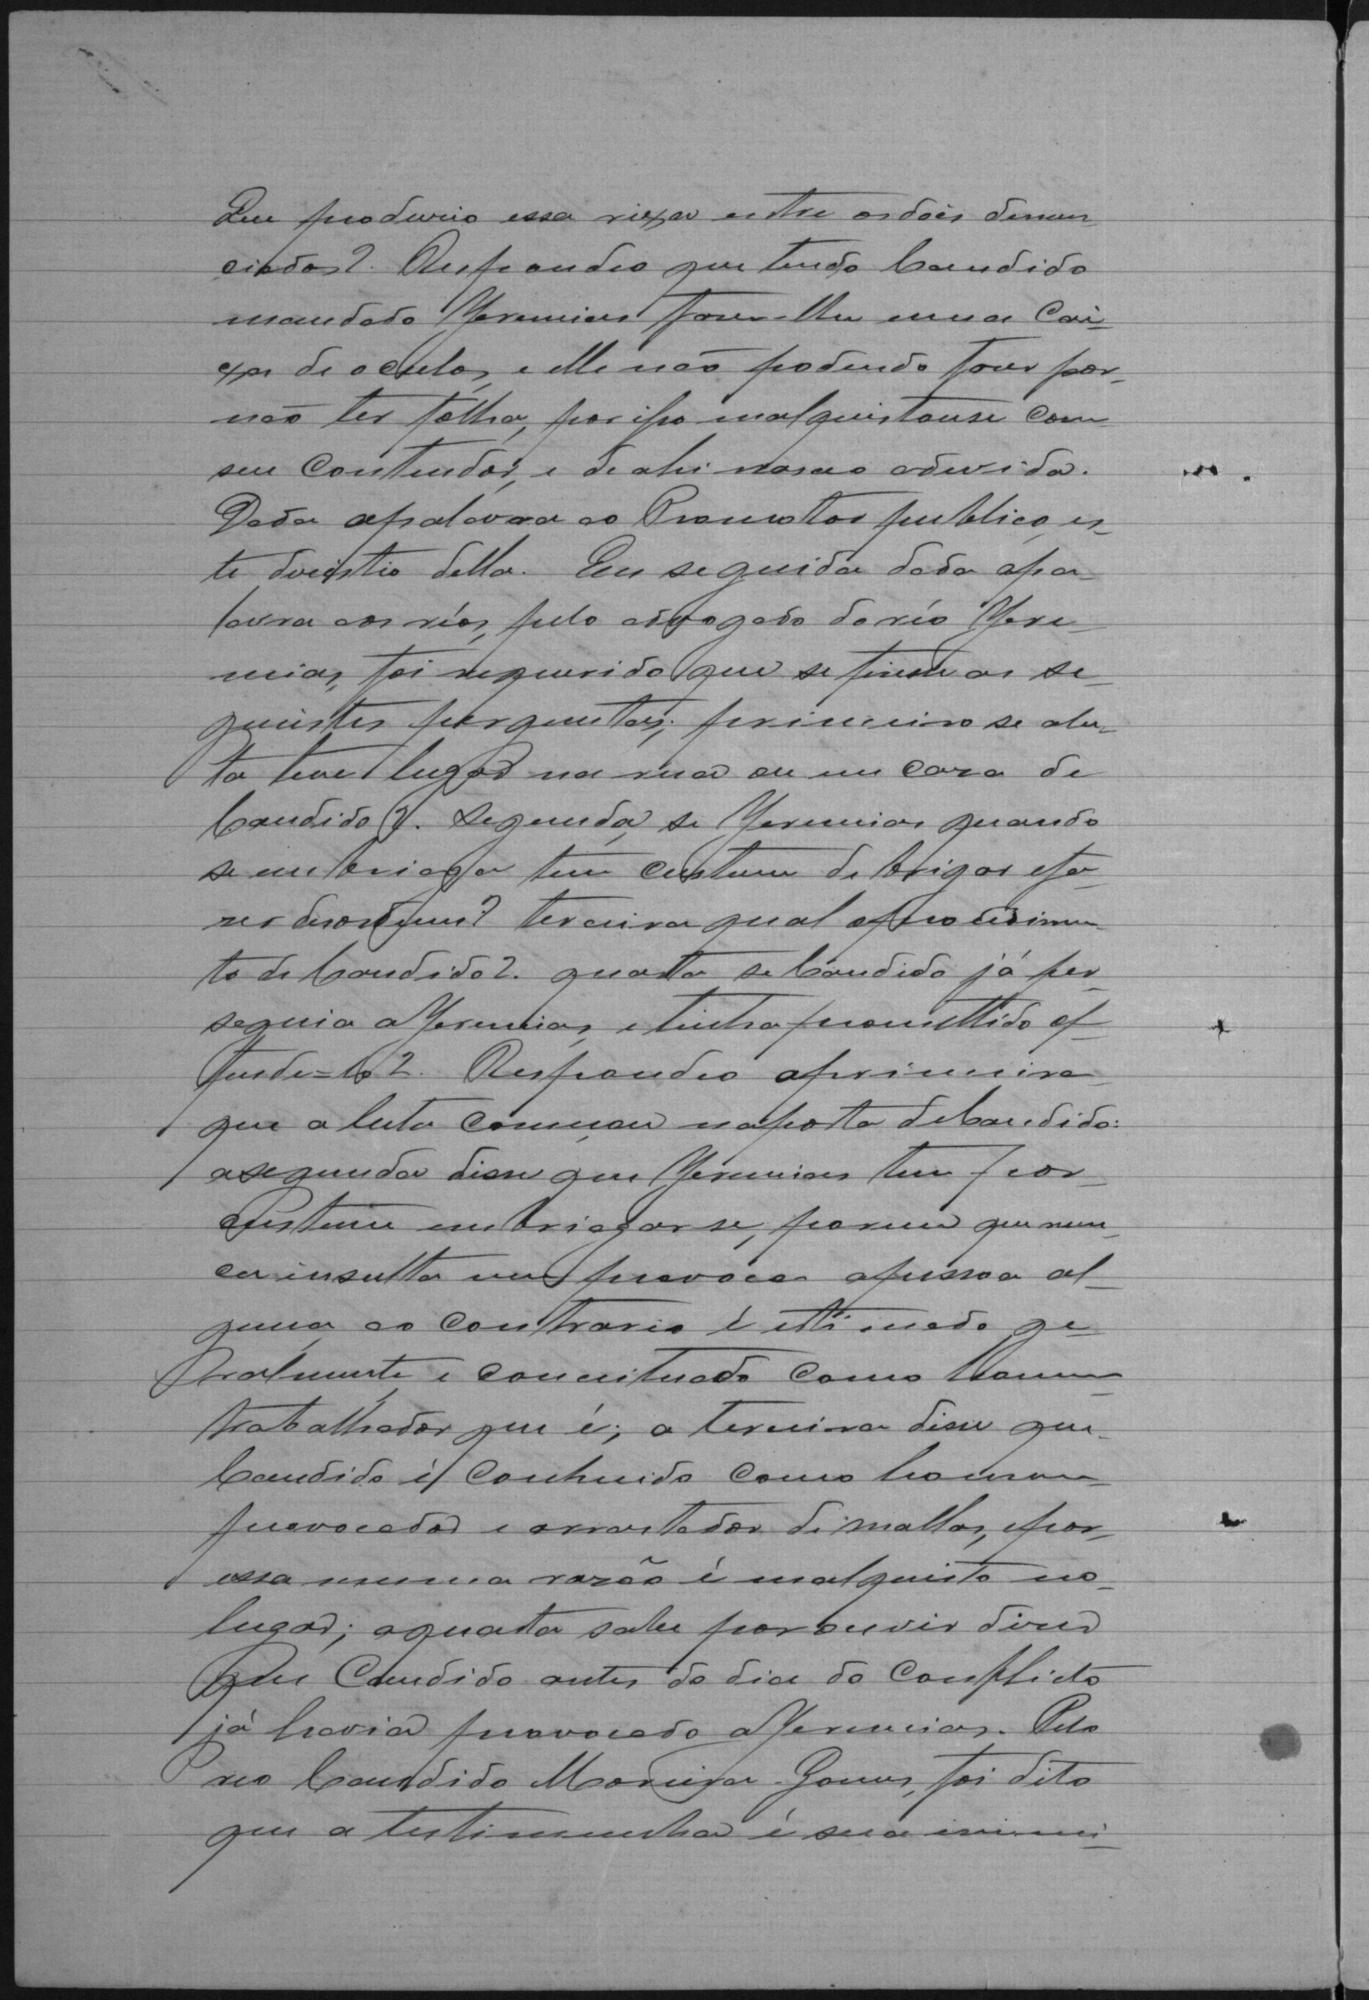 Que produzio essa rixa entre os dois denun-
ciados? Respondeo que tendo Candido
mandado Jeremias fazer-lhe uma Cai-
xa de oculos, e elle não podendo fazer por-
não ter folha, por isso malquistouse com
seu Contendor, e de ahi nasceo a duvida.
Dada a palavra ao Promotor publico, es-
te desistio della. Em seguida dada a pa-
lavra aos réos, pelo advogado do réo Jere-
mias, foi requerido que se fizesse as se-
guintes perguntas; primeiro se a lu-
ta teve lugar na rua ou em caza de
Candido? segunda, se Jeremias quando
se embriaga tem custume de brigar e fa-
zer desordens? terceira qual o procedimen-
to de Candido? quarta se Candido já per-
seguia a Jeremias, e tinha promettido of-
fende=lo? Respondeo a primeira
que a luta começou na porta de Candido:
a segunda disse que Jeremias tem por
custume embriagar se, porem que nun-
ca insulta nem provoca a pessoa al-
guma, ao contrario é estimado ge-
ralmente e conceituado como homem
trabalhador que é; a terceira disse que
Candido é conhecido como homem
provocador e arrostador de maltas, e por
essa mesma razão é malquisto no
lugar; a quarta sabe por ouvir dizer
que Candido antes do dia do Conflicto
já havia provocado a Jeremias. Pelo
reo Candido Moreira Gomes, foi dito
que a testimunha é sua inimi-